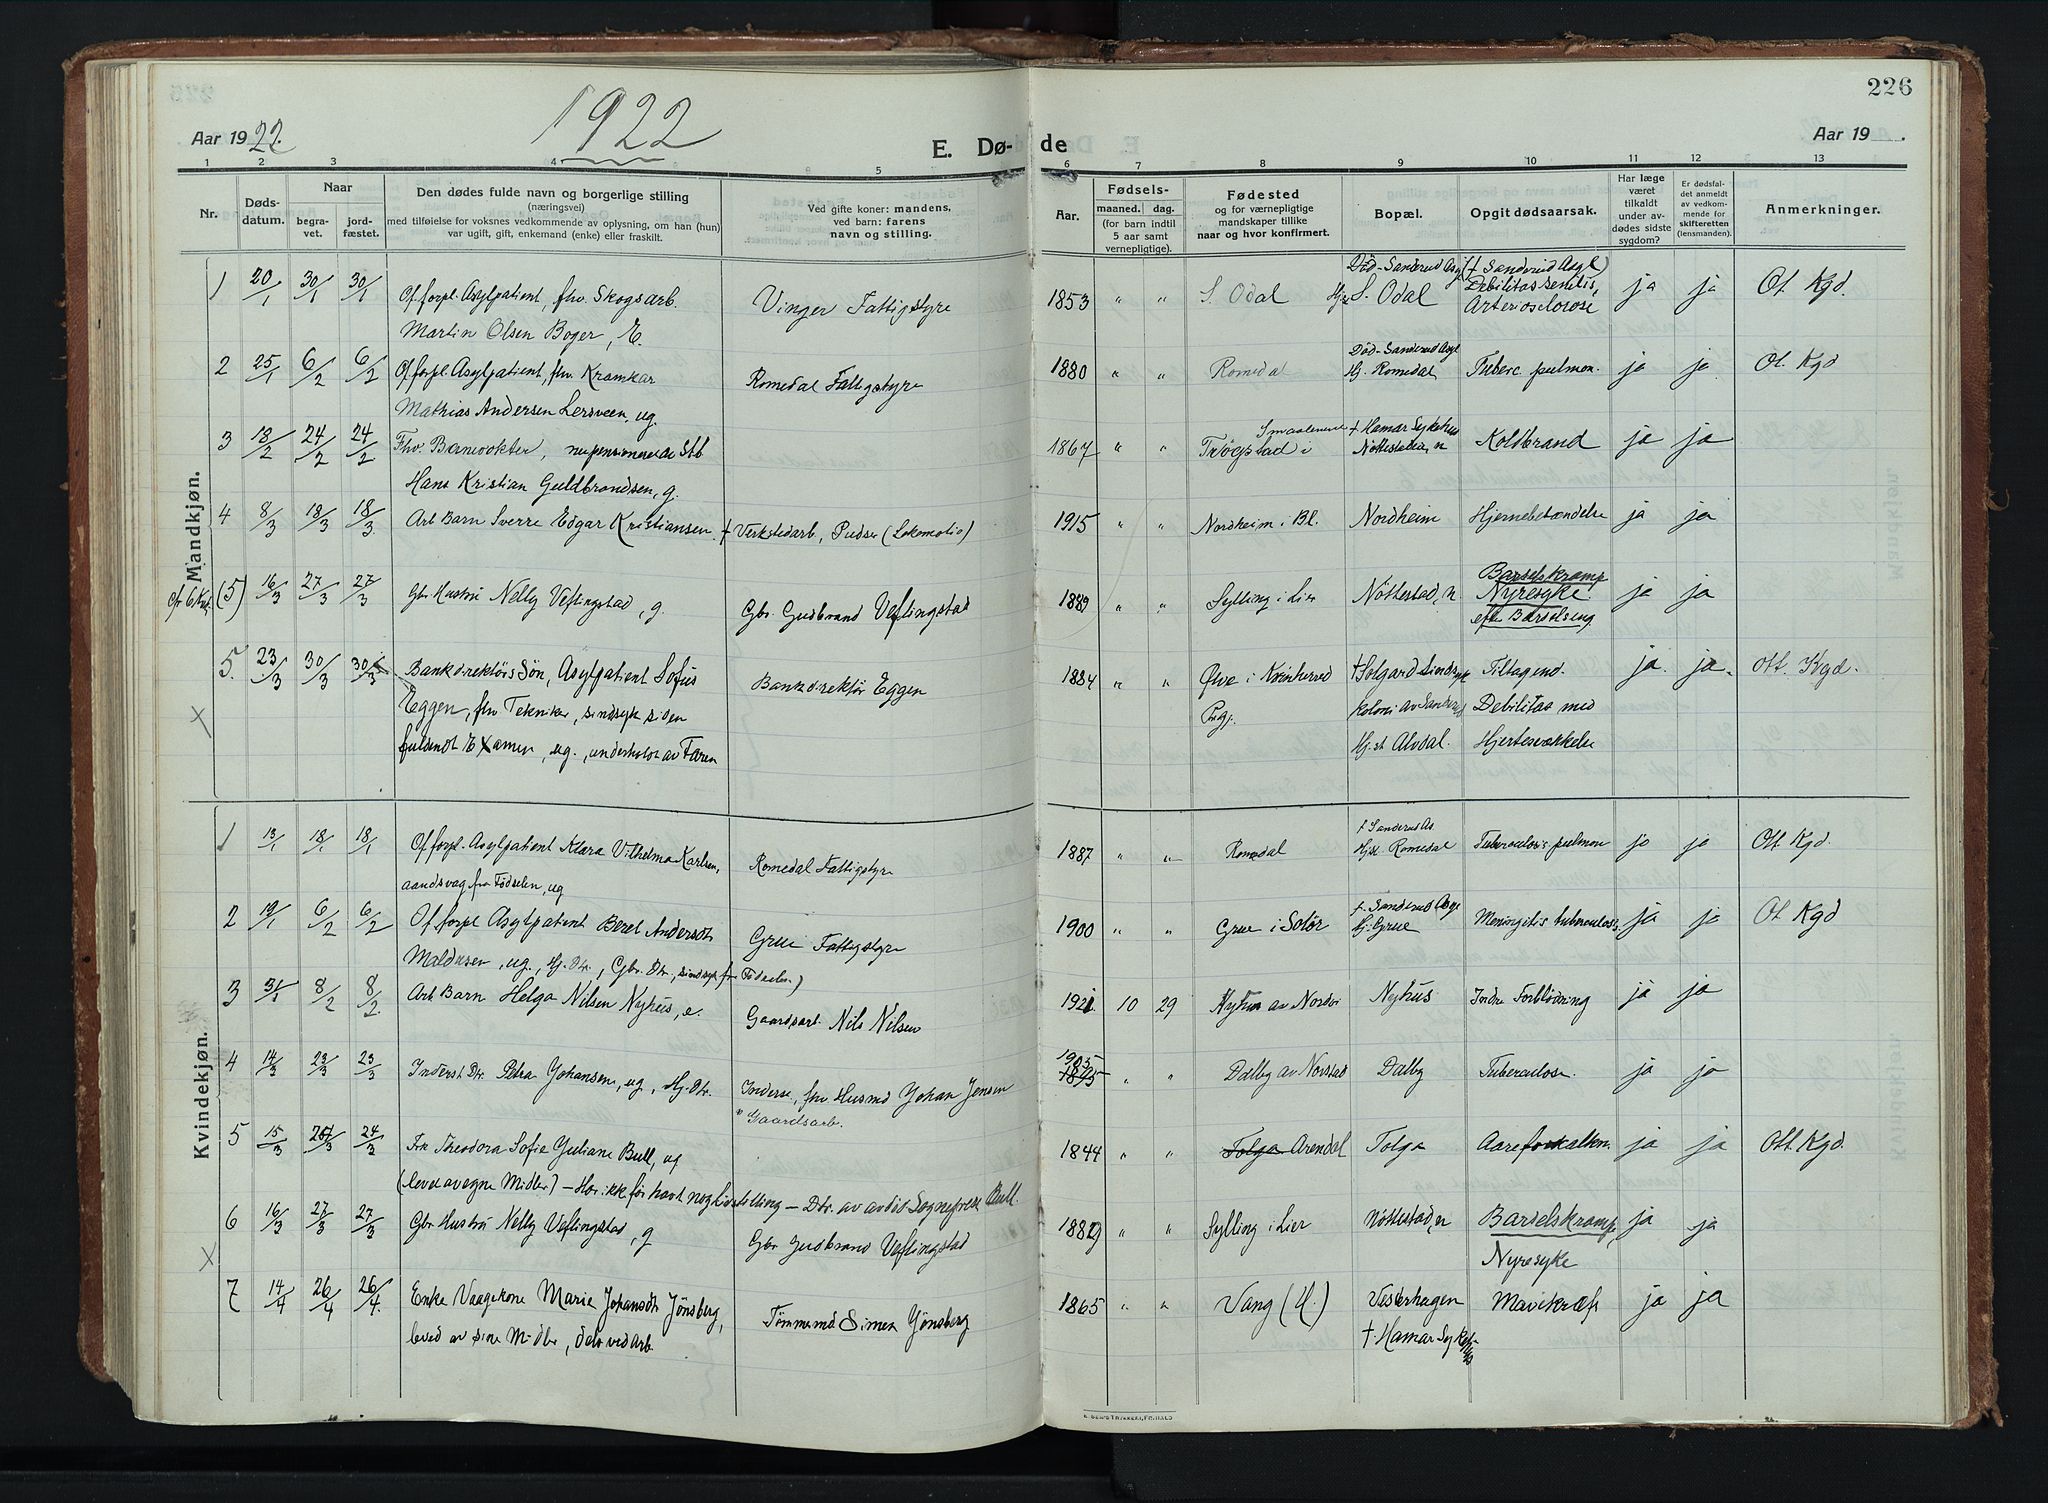 226
Aar 1922.
1922
E. Dø-
de
Aar 19 .
1 2 3 4 5 6 7 8 9 10 11 12 13
Nr.
Døds-
datum.
Naar
begra-
vet.
jord-
fæstet.
Den dødes fulde navn og borgerlige stilling
(næringsvei)
med tilføielse for voksnes vedkommende av oplysning, om han (hun)
var ugift, gift, enkemand (enke) eller fraskilt.
Ved gifte koner: mandens,
ved barn: farens
navn og stilling.
Aar.
Fødsels-
maaned. dag.
(for barn indtil
5 aar samt
vernepligtige).
Fødested
og for værnepligtige
mandskaper tillike
naar og hvor konfirmert.
Bopæl.
Opgit dødsaarsak.
Har læge
været
tilkaldt
under av-
dødes sidste
sygdom?
Er dødsfal-
det anmeldt
av vedkom-
mende for
skifteretten
(lensmanden).
Anmerkninger.
Mandkjøn.
1 20/1 30/1 30/1 Off. forpl. Asylpatient, fhv. Skogsarb.
Martin Olsen Boger, E.
Vinger Fattigstyre
1853 " " S. Odal
Død - Sanderud Asyl
Hj. S. Odal
(+ Sanderud Asyl)
Debilitas senilis,
Arteriosclerose
ja ja Ot. Kgd.
2 25/1 6/2 6/2 Off. forpl. Asylpatient, fhv. Kramkar
Mathias Andersen Lersveen, ug.
Romedal Fattigstyre
1880 " " Romedal
Død - Sanderud Asyl
Hj. Romedal
Tuberc. pulmon.
ja ja Ot. Kgd
3 18/2 24/2 24/2 Fhv. Banevokter, nu pensionerede Stb
Hans Kristian Guldbrandsen, g.
1867 " "
Smaalenene
Trögstad i
+ Hamar Sykehus
Nöttestad, n
Koldbrand
ja ja
4 8/3 18/3 18/3 Arb. Barn Sverre Edgar Kristiansen
+ Verkstedarb., Pudser (Lokomotiv)
1915 " " Nordheim i Bl.
Nordheim
Hjernebetændelse
ja ja
(5) 16/3 27/3 27/3 Gbr. Hustru Nelly Veflingstad, g.
Gbr. Gudbrand Veflingstad
1889 " " Sylling i Lier
Nöttestad, n.
Barselskramp
Nyresyke
efter Barselseng
ja ja
5. 23/3 30/3 30/3 Bankdirektörs Søn, Asylpatient Sofus
Eggen, fhv. Tekniker, sindsyk siden
fuldendt Examen, ug., underholdt av Faren
X
Bankdirektør Eggen
1884 " " Ølve i Kvinherred
Prgj.
+ Solgard Sindssyk
koloni av Sanderud
Hj.st Alvdal.
Tiltagend.
Debilitas med
Hjertesvækkelse
ja ja. Ott. Kgd.
Kvindekjøn.
1 13/1 18/1 18/1 Off. forpl. Asylpatient Klara Vilhelma Karlsen,
aandsvag fra Fødselen, ug
Romedal Fattigstyre
1887 " " Romedal
+ Sanderud As.
Hjst Romedal
Tuberculosis pulmon
ja ja Ott. Kgd.
2 19/1 6/2 6/2 Off. forpl. Asylpatient Beret Andersdt.
Moldusen, ug., Hj. Dtr., Gbr. Dtr., sindssyk fra Fødselen)
Grue Fattigstyre
1900 " " Grue i Solør
+ Sanderud Asyl
Hj. Grue
Meningitis tuberculosis.
ja ja Ot Kgd
3 31/1 8/2 8/2. Arb. Barn Helga Nilsen Nyhus, e.
Gaardsarb. Nils Nilsen
1921 10 29 Nyhus av Nordvi
Nyhus
Indre Forblödning
ja ja
4 14/3 23/3 23/3 Inderst Dtr. Petra Johansen, ug, Hj. Dtr.
Inderse, fhv. Husmd Johan Jensen
" Gaardsarb.
1905
" " Dalby av Norstad
Dalby
Tuberculose.
ja ja
5 15/3 24/3 Frk Theodora Sofie Juliane Bull, ug
(levet av egne Midler) – Har ikke før havt nog Livsstilling – Dtr. av avdøde Sogneprest Bull.
1844 " " Tolga Arendal
Tolga
Aareforkalkn.
ja ja Ott. Kgd.
6 16/3 27/3 27/3 Gbr Hustru Nelly Veflingstad, g
X
Gbr Gudbrand Veflingstad
1889 " " Sylling i Lier
Nöttestad, n
Barselskramp,
Nyresyke
ja ja
7 14/4 26/4 26/4. Enke Vaagekone Marie Johansdt. Jönsberg,
leved av sine Midler, delvis ved Arb.
Tømmermd Simen Jönsberg
1865 " " Vang (H.)
Vesterhagen
+ Hamar Sykeh.
Mavekræft
ja ja